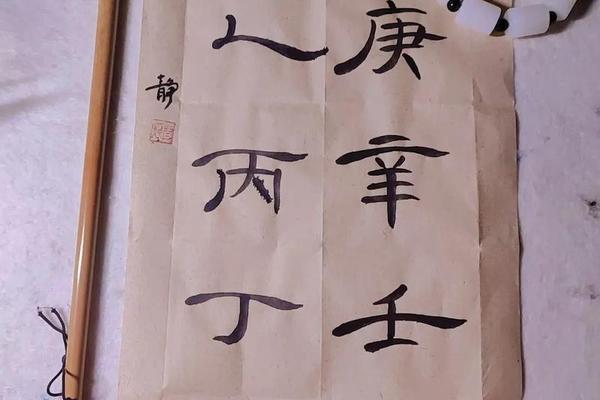 庚辛壬
乙丙丁
静